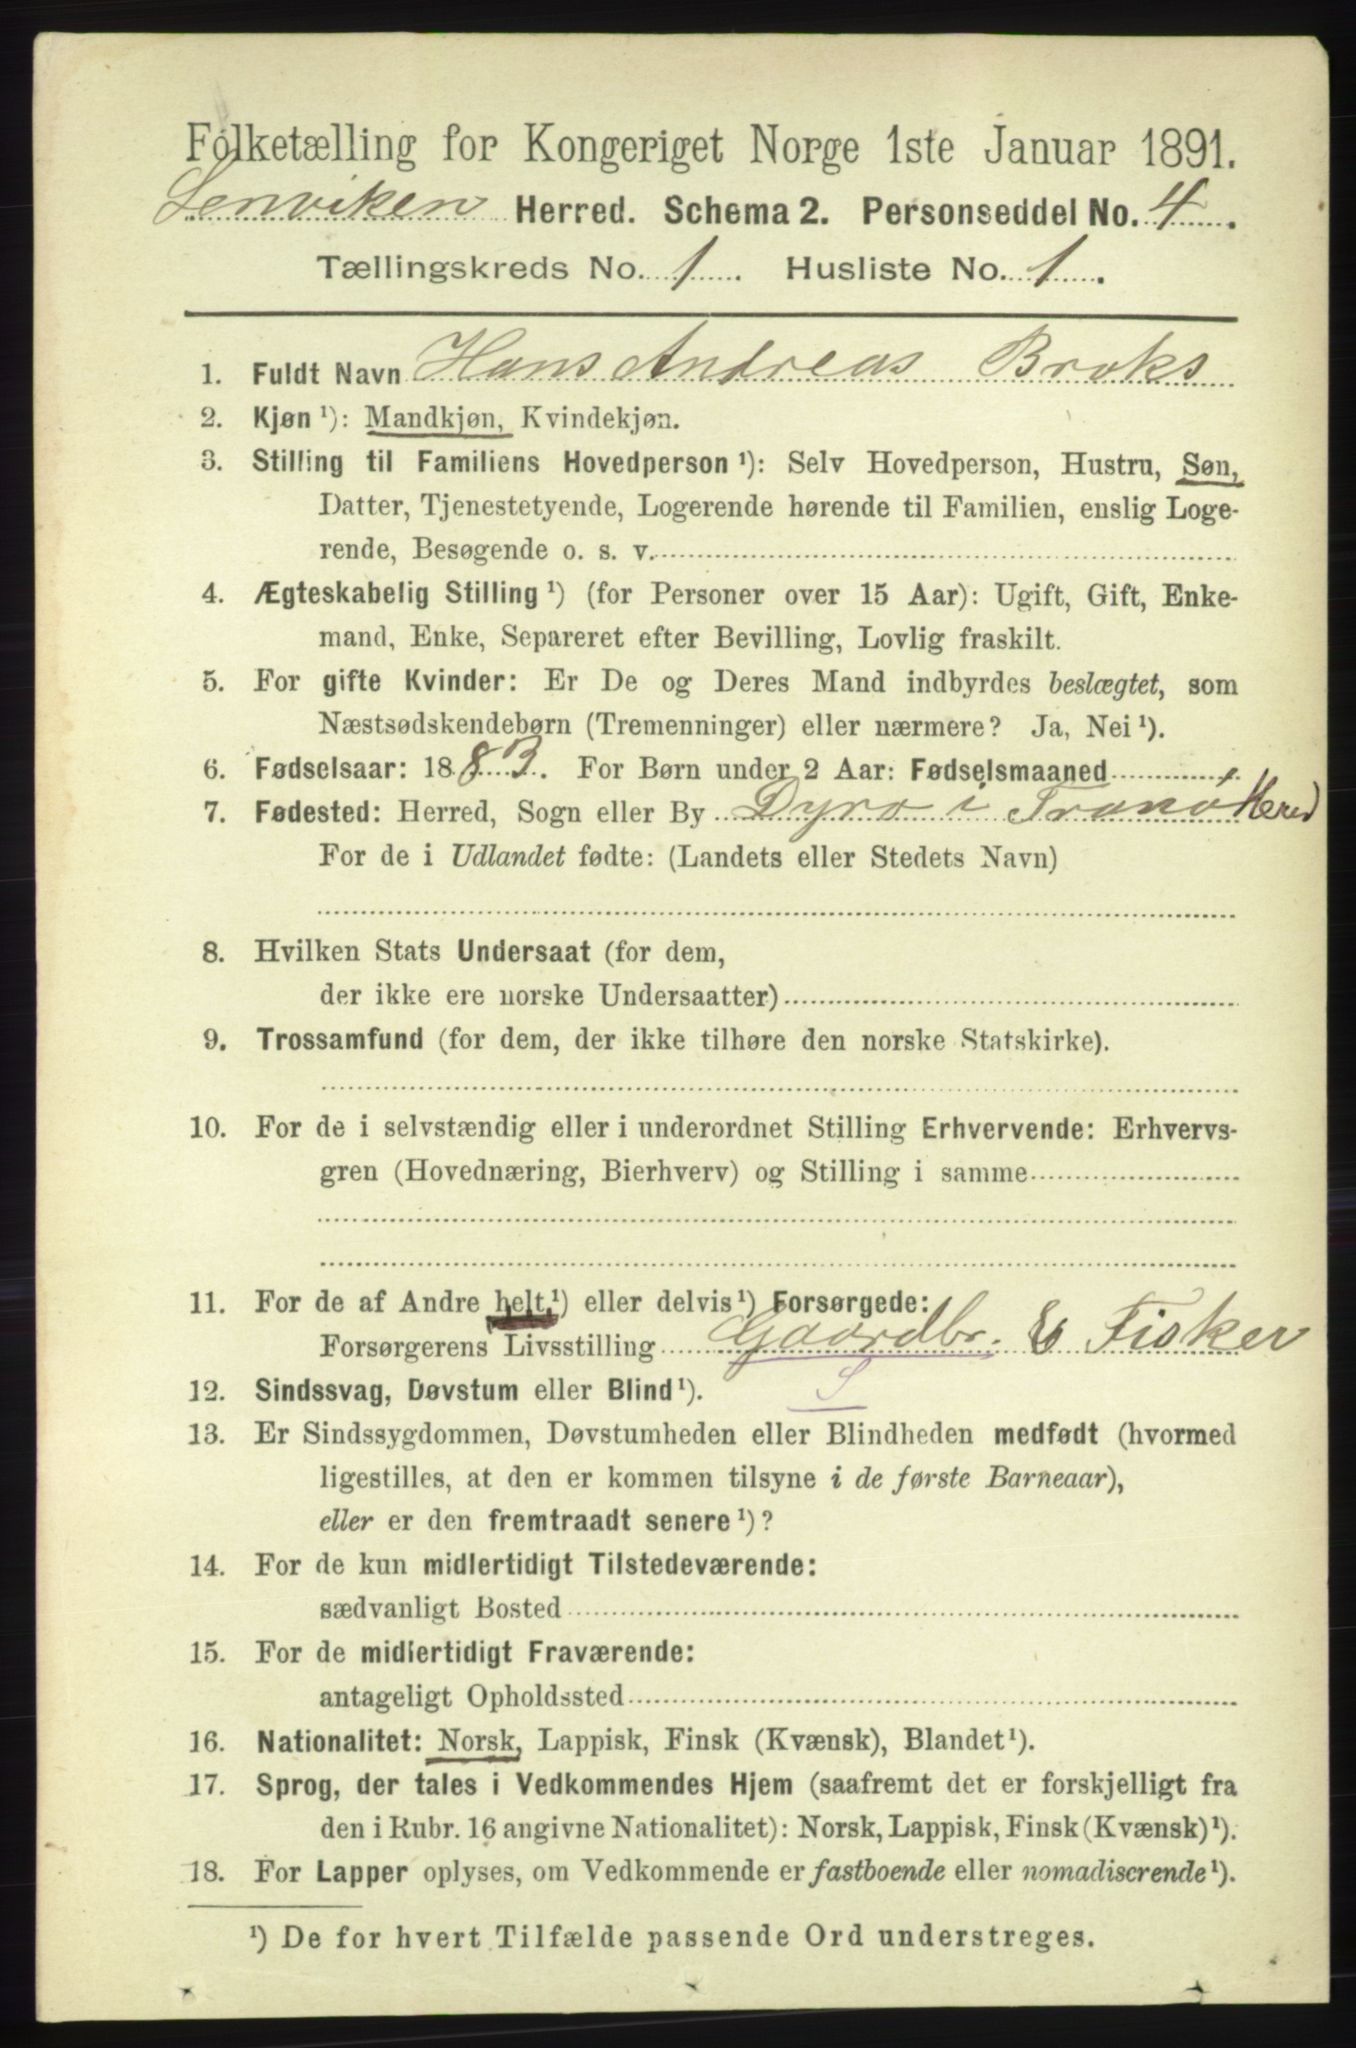 Folketælling for Kongeriget Norge 1ste Januar 1891.
Lenviken Herred. Schema 2. Personseddel No. 4.
Tællingskreds No. 1. Husliste No. 1.
1. Fuldt Navn Hans Andreas Broks
2. Kjøn¹): Mandkjøn, Kvindekjøn.
3. Stilling til Familiens Hovedperson¹): Selv Hovedperson, Hustru, Søn,
Datter, Tjenestetyende, Logerende hørende til Familien, enslig Loge-
rende, Besøgende o. s. v.
4. Ægteskabelig Stilling¹) (for Personer over 15 Aar): Ugift, Gift, Enke-
mand, Enke, Separeret efter Bevilling, Lovlig fraskilt.
5. For gifte Kvinder: Er De og Deres Mand indbyrdes beslægtet, som
Næstsødskendebørn (Tremenninger) eller nærmere? Ja, Nei¹).
6. Fødselsaar: 1883. For Børn under 2 Aar: Fødselsmaaned
7. Fødested: Herred, Sogn eller By Dyrø i Tranø Herred
For de i Udlandet fødte: (Landets eller Stedets Navn)
8. Hvilken Stats Undersaat (for dem,
der ikke ere norske Undersaatter)
9. Trossamfund (for dem, der ikke tilhøre den norske Statskirke).
10. For de i selvstændig eller i underordnet Stilling Erhvervende: Erhvervs-
gren (Hovednæring, Bierhverv) og Stilling i samme
11. For de af Andre helt¹) eller delvis¹) Forsørgede:
Forsørgerens Livsstilling Gaardbr. & Fisker
12. Sindssvag, Døvstum eller Blind¹). S
13. Er Sindssygdommen, Døvstumheden eller Blindheden medfødt (hvormed
ligestilles, at den er kommen tilsyne i de første Barneaar),
eller er den fremtraadt senere¹)?
14. For de kun midlertidigt Tilstedeværende:
sædvanligt Bosted
15. For de midlertidigt Fraværende:
antageligt Opholdssted
16. Nationalitet: Norsk, Lappisk, Finsk (Kvænsk), Blandet¹).
17. Sprog, der tales i Vedkommendes Hjem (saafremt det er forskjelligt fra
den i Rubr. 16 angivne Nationalitet): Norsk, Lappisk, Finsk (Kvænsk)¹).
18. For Lapper oplyses, om Vedkommende er fastboende eller nomadiserende¹).
¹) De for hvert Tilfælde passende Ord understreges.